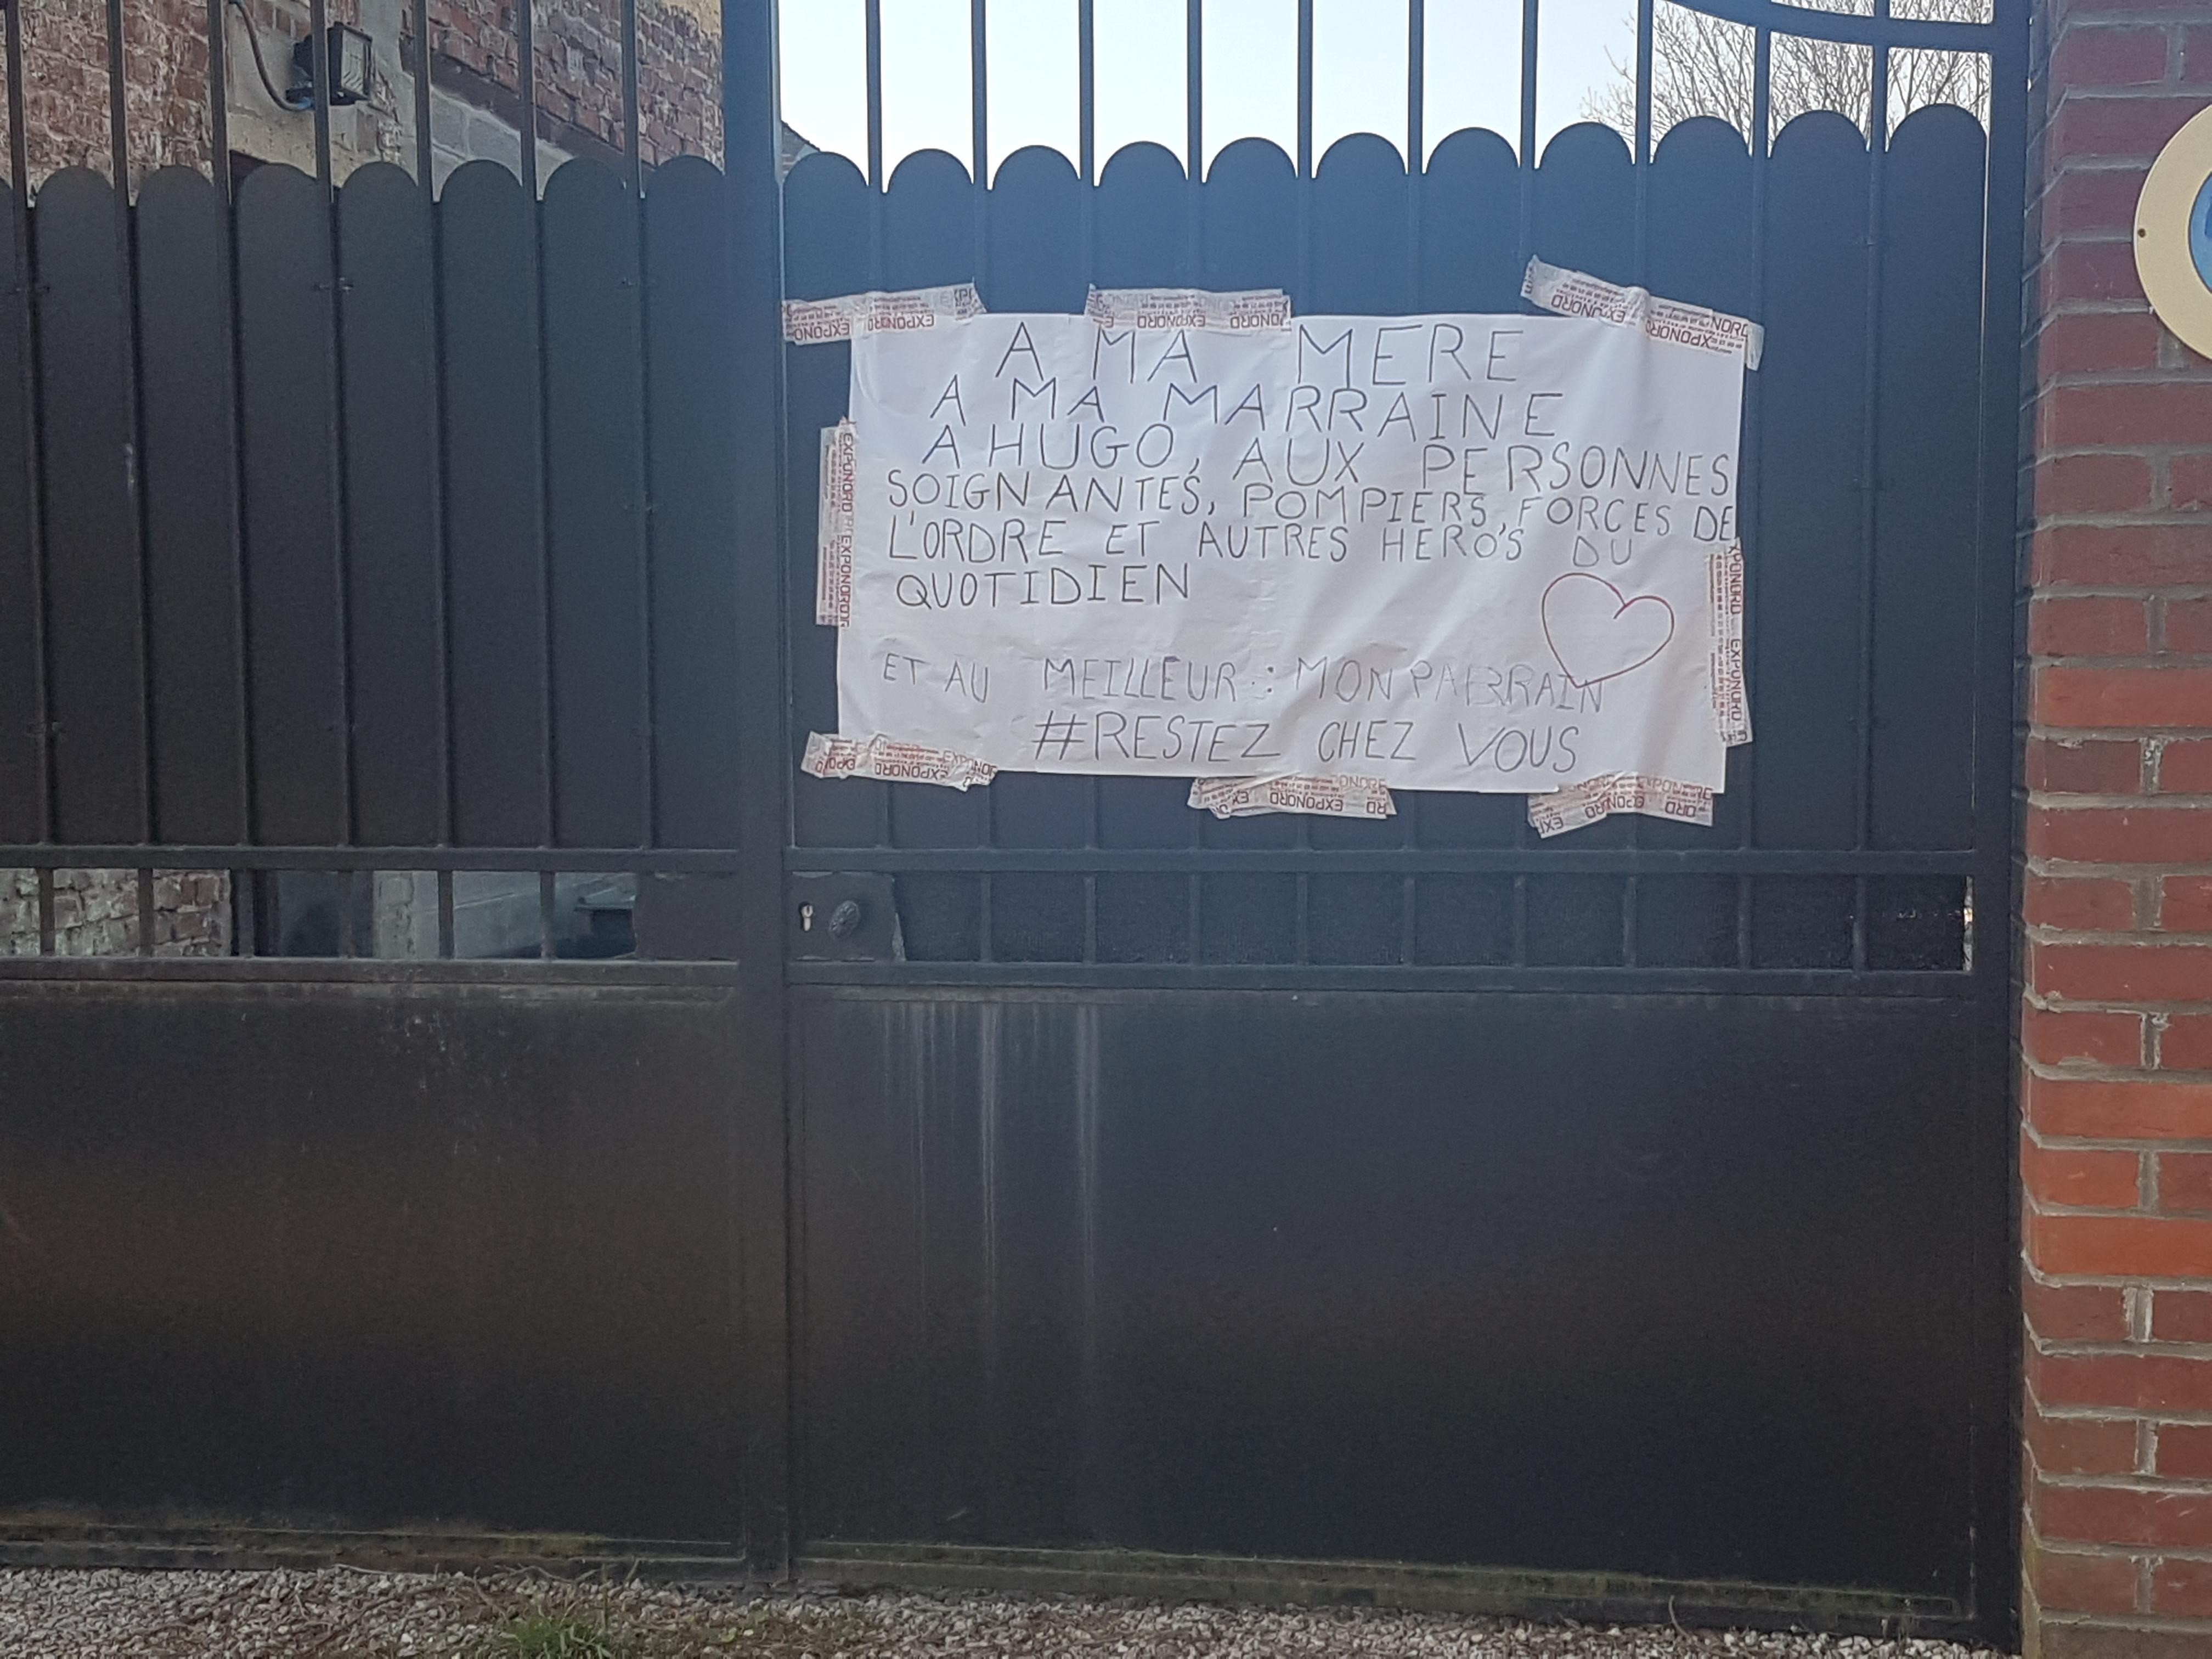 A MA MERE
A MA MARRAINE
A HUGO, AUX PERSONNES
SOIGNANTES, POMPIERS, FORCES DE
L'ORDRE ET AUTRES HERO'S DU
QUOTIDIEN
ET AU MEILLEUR : MON PARRAIN
#RESTEZ CHEZ VOUS
EXPONORD
EXPONORD
EXPONORD
EXPONORD
EXPONORD
EXPONORD
EXPONORD
EXPONORD